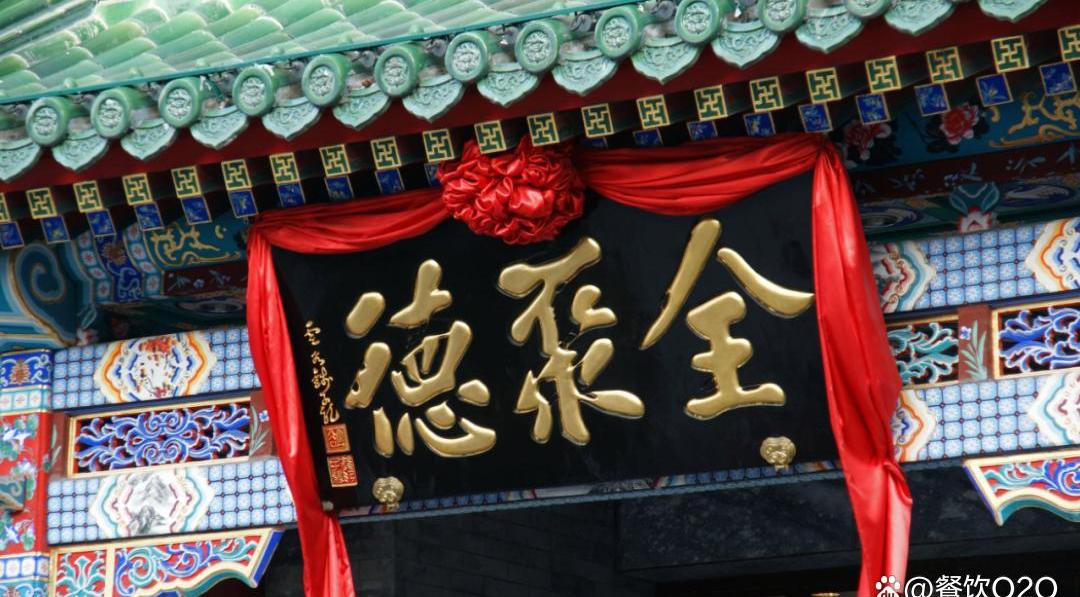 全聚德
@餐饮O2O